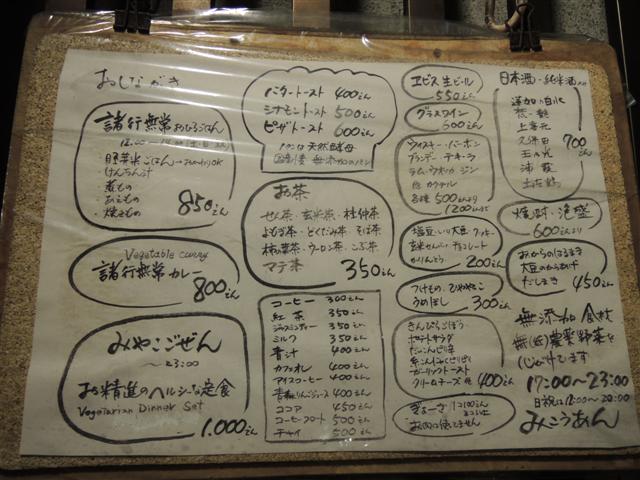 おしながき
諸行無常おひるごはん
胚芽米ごはん→おかわりOK
けんちん汁
・煮もの
・あえもの
・焼きもの
850えん
Vegetable curry
諸行無常カレー
800えん
みやこごぜん
～23:00
お精進のヘルシーな定食
Vegetarian Dinner Set
1,000えん
バタートースト 400えん
シナモントースト 500えん
ピザトースト 600えん
パンは天然酵母
お茶
せん茶・玄米茶・杜仲茶
よもぎ茶・どくだみ茶・そば茶
柿の葉茶・ウーロン茶・こぶ茶
マテ茶 350えん
コーヒー 300えん
紅茶 350えん
ジャスミンティー 350えん
ミルク 350えん
青汁 400えん
カフェオレ 400えん
アイスコーヒー 400えん
青森りんごジュース 400えん
ココア 450えん
コーヒーフロート 500えん
チャイ 500えん
ヱビス生ビール
550えん
グラスワイン
600えん
ウイスキー・バーボン
ブランデー・テキーラ
ラム・ウオッカ・ジン
他 カクテル
各種 500えんより
1200えんまで
塩豆・いり大豆・クッキー
玄米せんべい・チョコレート
かりんとう 200えん
つけもの・ひややっこ
うめぼし 300えん
きんぴらごぼう
ポテトサラダ
ガーリックトースト
クリームチーズ 他 400えん
ぎょーざ 1コ100えん
お肉は使てません
日本酒・純米酒
上喜元
久保田
玉乃光
浦霞
700えん
焼酎・泡盛
600えんより
おからのはるまき
大豆のからあげ
だしまき 450えん
無添加食材
無(低)農薬野菜を
17:00～23:00
日祝は12:00～20:00
みこうあん